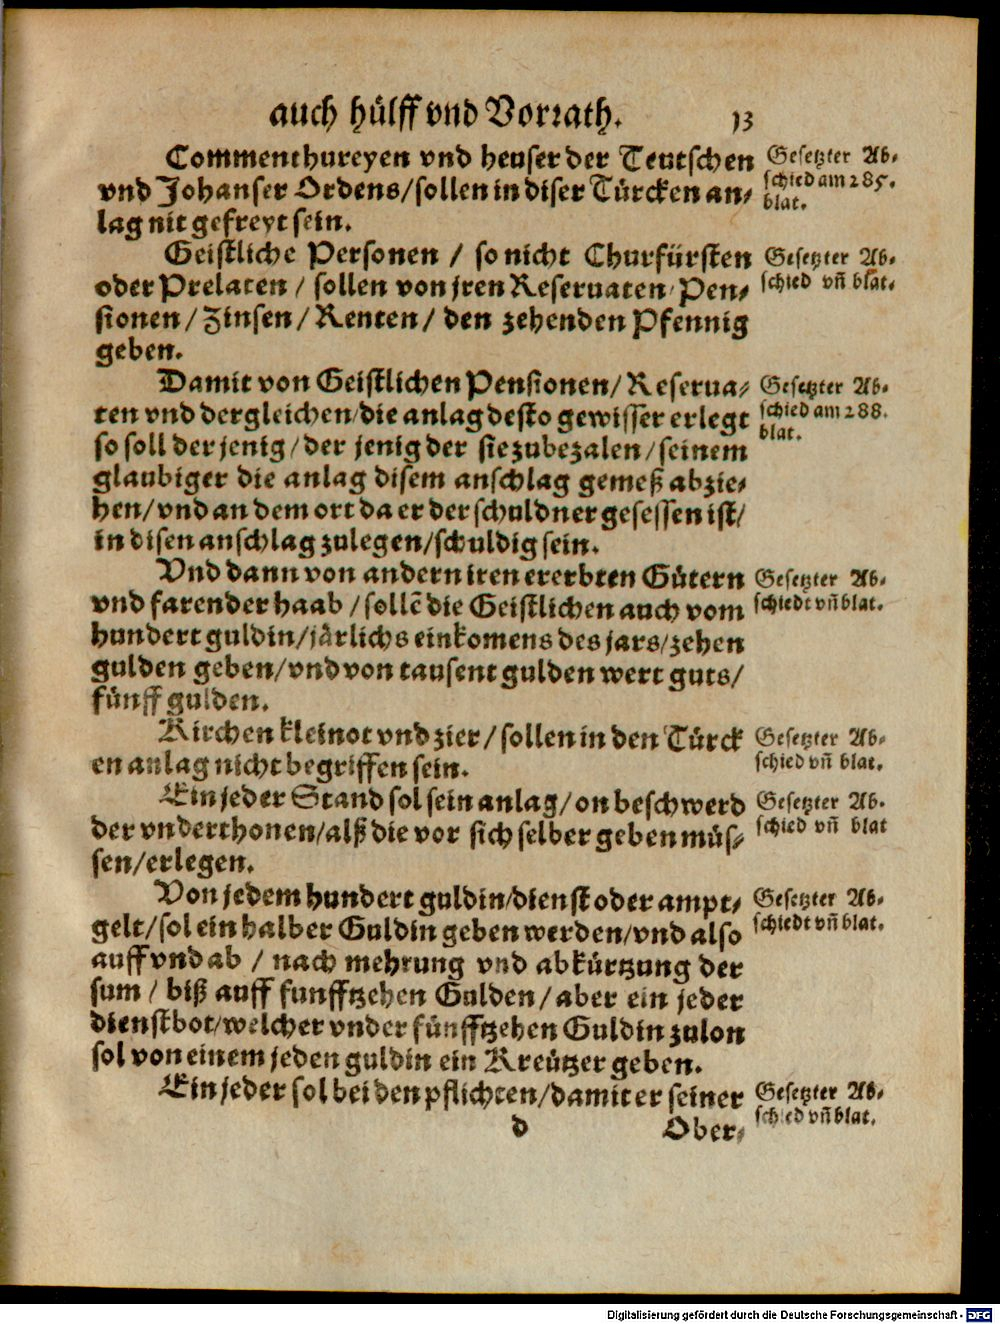 auch hülff vnd Vorrath. 13
Commenthureyen vnd heuser der Teutschen
vnd Johanser Ordens/sollen in diser Türcken an-
lag nit gefreyt sein.
Gesetzter Ab-
schied am 285.
blat.
Geistliche Personen / so nicht Churfürsten
oder Prelaten / sollen von jren Reseruaten/ Pen-
sionen/ Zinsen/ Renten/ den zehenden Pfennig
geben.
Gesetzter Ab-
schied vñ blat.
Damit von Geistlichen Pensionen/ Reserua-
ten vnd dergleichen/die anlag desto gewisser erlegt
so soll der jenig/der jenig der sie zubezalen/seinem
glaubiger die anlag disem anschlag gemeß abzie-
hen/vnd an dem ort da er der schuldner gesessen ist/
in disen anschlag zulegen/schuldig sein.
Gesetzter Ab-
schied am 288.
blat.
Vnd dann von andern iren ererbten Gütern
vnd farender haab /sollẽ die Geistlichen auch vom
hundert guldin/järlichs einkomens des jars/zehen
gulden geben/vnd von tausent gulden wert guts/
fünff gulden.
Gesetzter Ab-
schiedt vñ blat.
Kirchen kleinot vnd zier/sollen in den Türck
en anlag nicht begriffen sein.
Gesetzter Ab-
schied vñ blat.
Ein jeder Stand sol sein anlag/on beschwerd
der vnderthonen/alß die vor sich selber geben müs-
sen/erlegen.
Gesetzter Ab-
schied vñ blat
Von jedem hundert guldin/dienst oder ampt-
gelt/sol ein halber Guldin geben werden/vnd also
auff vnd ab / nach mehrung vnd abkürtzung der
sum / biß auff funfftzehen Gulden/aber ein jeder
dienstbot/welcher vnder fünfftzehen Guldin zulon
sol von einem jeden guldin ein Kreützer geben.
Gesetzter Ab-
schiedt vñ blat.
Ein jeder sol bei den pflichten/damit er seiner
Gesetzter Ab-
schied vñ blat.
d Ober-
Digitalisierung gefördert durch die Deutsche Forschungsgemeinschaft - DFG